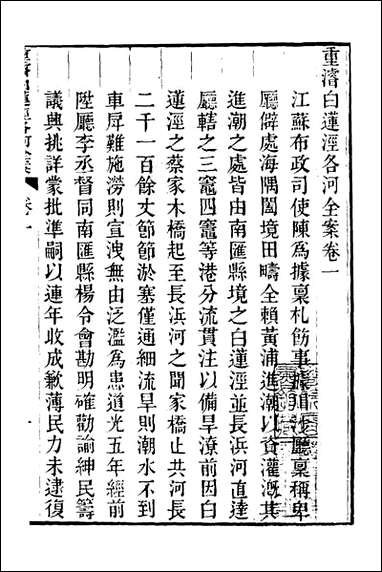 重濬白蓮涇各河全案卷一
江蘇布政司使陳爲據稟札飭事據川沙廳稟稱卑
廳僻處海隅闔境田疇全賴黃浦進潮以資灌溉其
進潮之處皆由南匯縣境之白蓮涇並長浜河直達
廳轄之三竈四竈等港分流貫注以備旱潦前因白
蓮涇之蔡家木橋起至長浜河之聞家橋止共河長
二千一百餘丈節節淤塞僅通細流旱則潮水不到
車戽難施澇則宣洩無由泛濫爲患道光五年經前
陞廳李丞督同南匯縣楊令會勘明確勸諭紳民籌
議興挑詳蒙批準嗣以連年收成歉薄民力未逮復
卷一
一